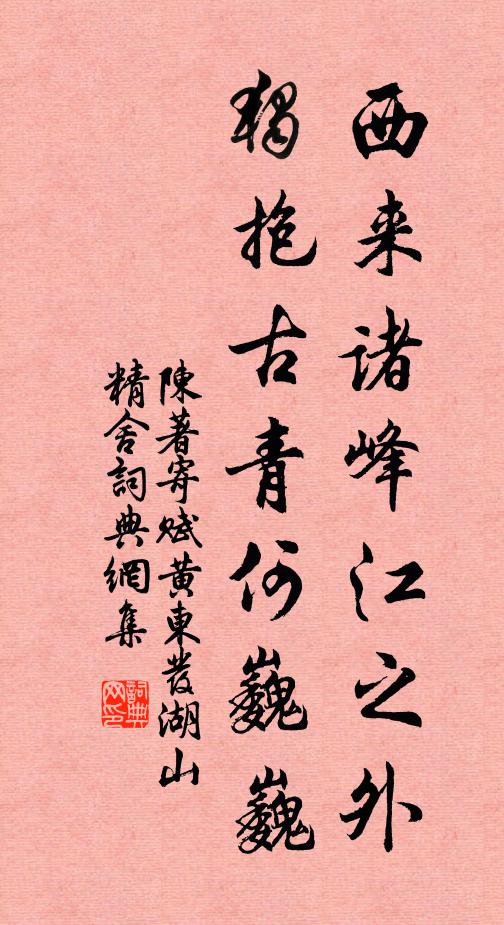 西来诸峰江之外
獨抱古青何巍巍
陳著寄賦黄東發湖山
精舍詞典網集
詞典
网印